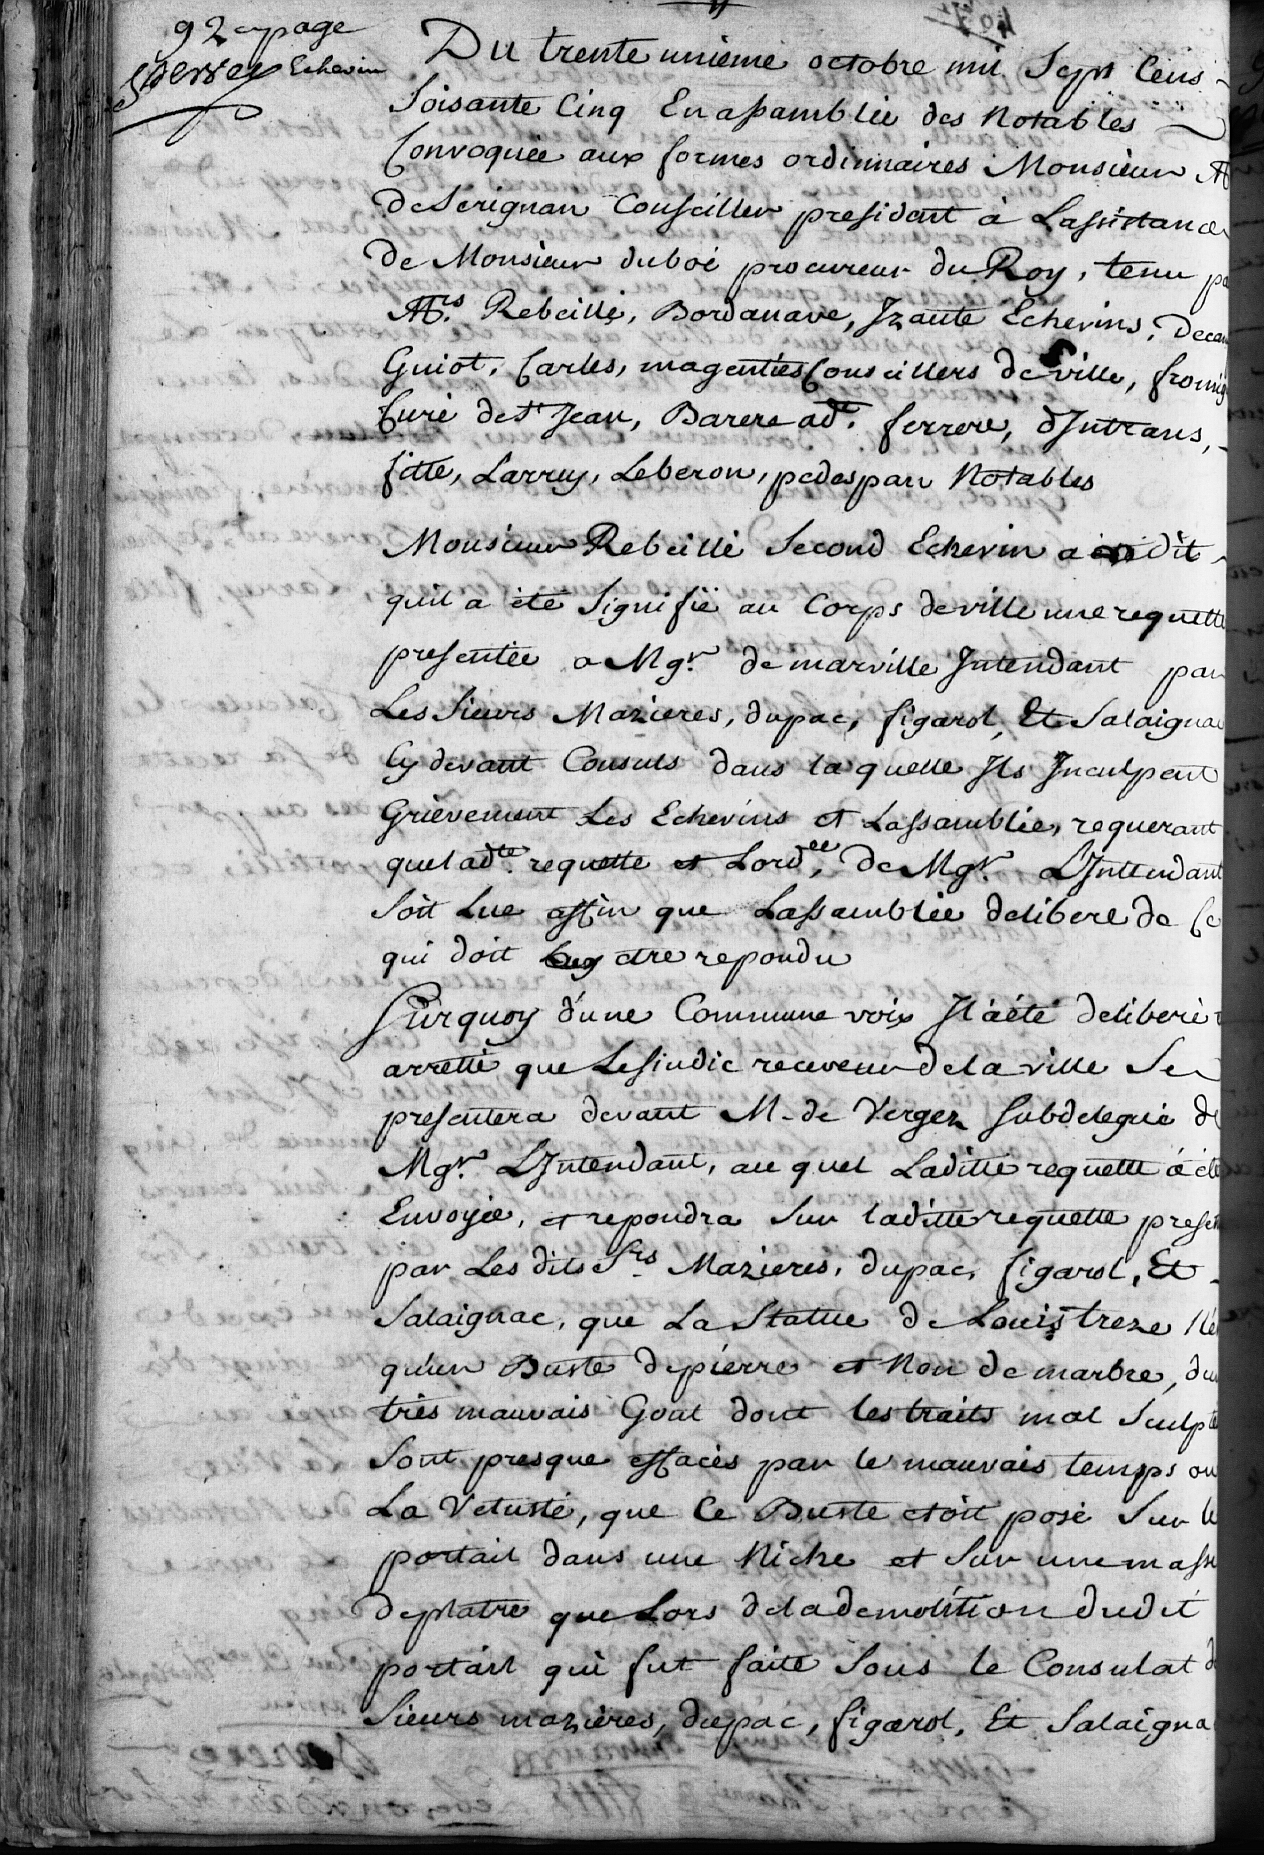 92 e page
Echevin
Du trente unieme octobre mil Sept Cens
Soisante Cinq En assamblée des Notables
Convoquée aux formes ordinnaires Monsieur
de Serignan Conseiller president à Lassistance
de Monsieur duboé procureur du Roy, tenu
Mrs. Rebeillé, Bordanave, Jzante Echevins,
Guiot, Carles, magenties Conseillers de ville,
Curé de St Jean, Barere adt. ferrere, dJntrans,
fitte, Larrey, Leberon, pedespan Notables
Monsieur Rebeillé Second Echevin a dit
quil a été Signifié au Corps de ville une requette
presentée a Mgr. de marville Jntendant par
Les Sieurs Mazieres, dupac, figarol, Et Salaignac
Cy devant Consuls dans la quelle Jls Jnculpent
Grièvement Les Echevins et Lassamblée, requerant
que ladte. requette et Lordee. de Mgr. LJnttendant
Soit Lue affin que Lassamblée delibere de Ce
qui doit etre repondu
Surquoy d'une Commune voix Jl a été deliberé
arretté que Le sindic receveur de la ville Se
presentera devant M. de Verges Subdelegué de
Mgr. LJntendant, au quel Laditte requette a été
Envoyée, et repondra Sur laditte requette
par Les dits Srs Mazieres, dupac, figarol, Et
Salaignac, que La Statue de Louis treze
qu'un Buste de pierre et Non de marbre,
très mauvais Gout dont les traits mal
Sont presque effacés par le mauvais temps ou
La Vetusté, que Ce Buste etoit posé Sur le
portail dans une Niche et Sur une masse
de platre que Lors de la demolition dudit
portail qui fut faite Sous le Consulat
Sieurs mazières, dupac, figarol, Et Salaigna